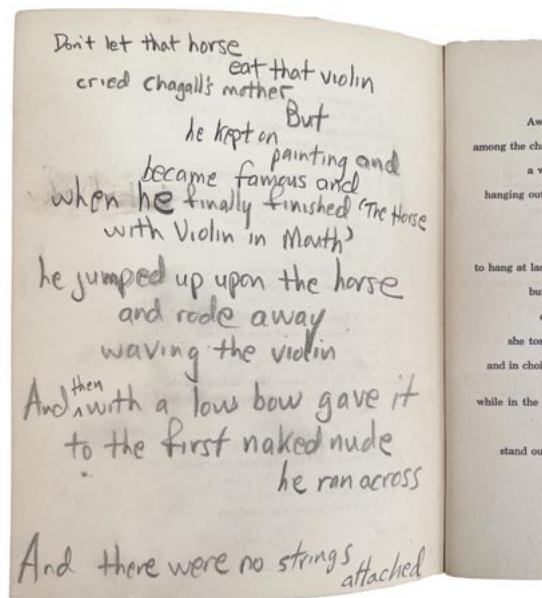 Don't let that horse
eat that violin
cried Chagall's mother
But
he kept on
painting and
became famous and
when he finally finished 'The Horse
with Violin in Mouth'
he jumped up upon the horse
and rode away
waving the violin
And then with a low bow gave it
to the first naked nude
he ran across
And there were no strings
attached
Aw
among the cha
a w
hanging out
to hang at las
bu
she tos
and in choi
while in the
stand ou